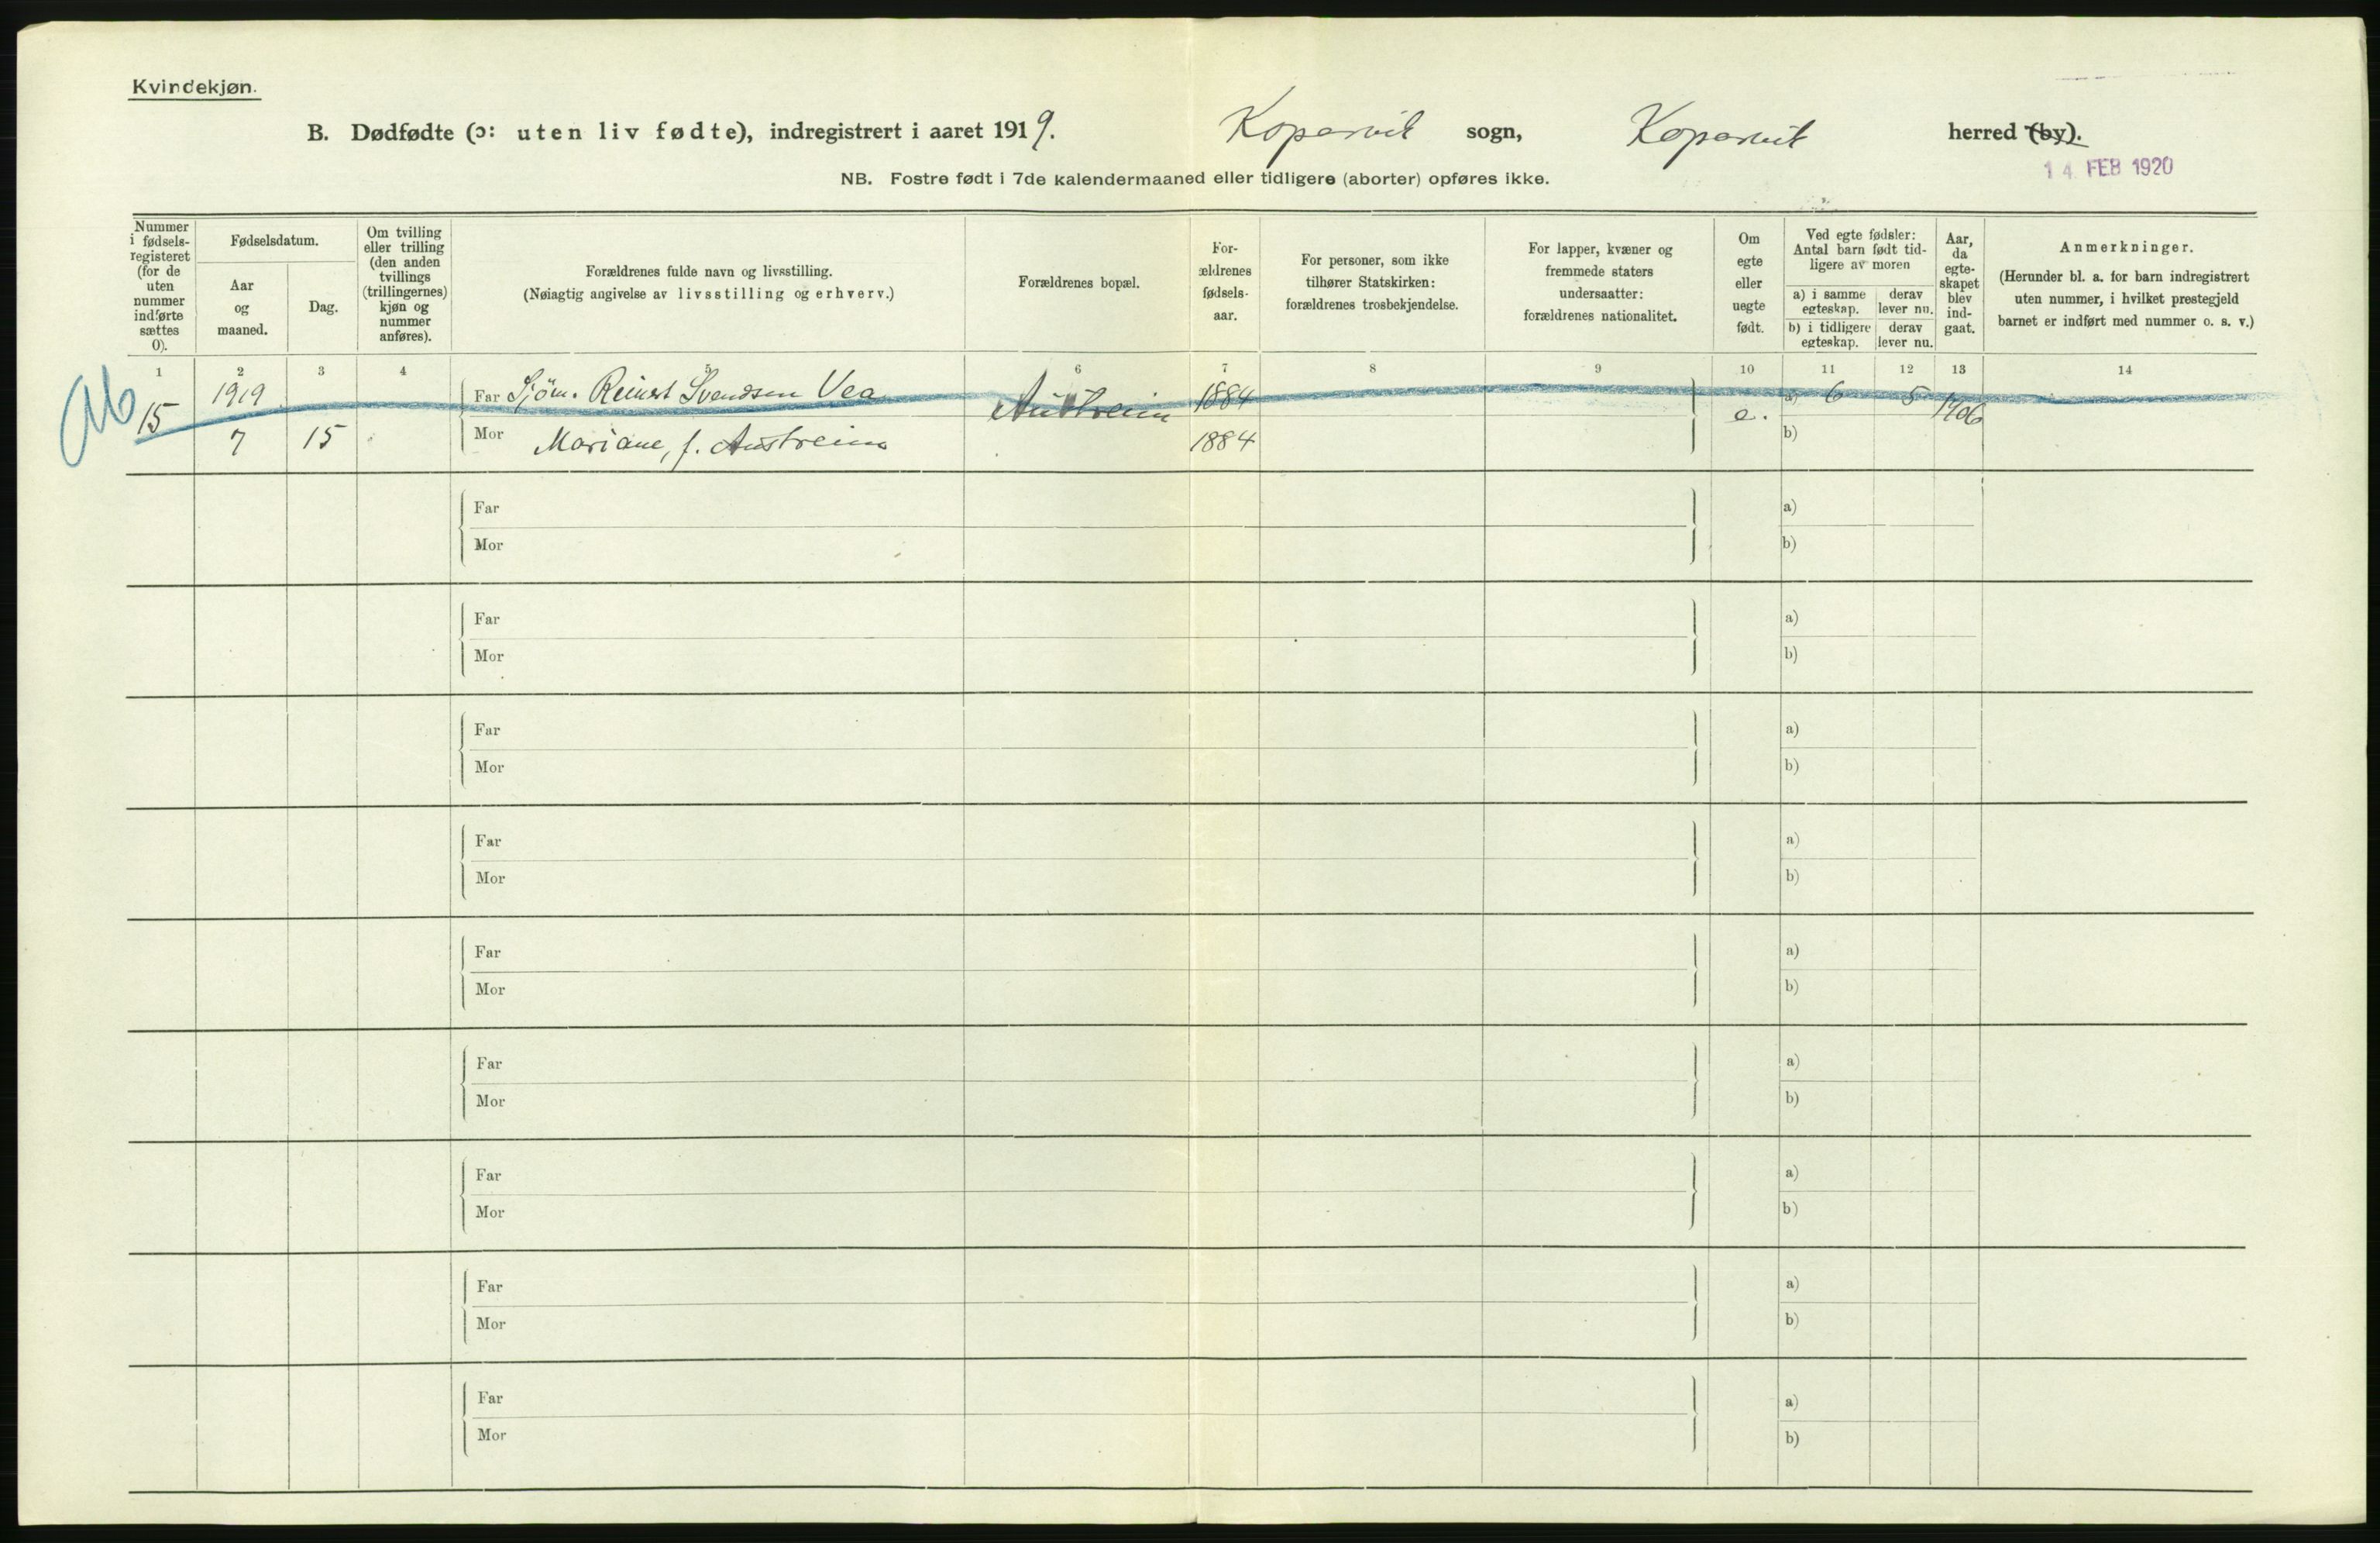 Kvindekjøn.
B. Dødfødte (ɔ: uten liv fødte), indregistrert i aaret 1919. Kopervik sogn, Kopervik herred (by).
14 FEB 1920
NB. Fostre født i 7de kalendermaaned eller tidligere (aborter) opføres ikke.
Nummer i fødsels-registeret (for de uten nummer indførte sættes 0).
Fødselsdatum.
Aar og maaned.
Dag.
Om tvilling eller trilling (den anden tvillings (trillingernes) kjøn og nummer anføres).
Forældrenes fulde navn og livsstilling.
(Nøiagtig angivelse av livsstilling og erhverv.)
Forældrenes bopæl.
For-ældrenes fødsels-aar.
For personer, som ikke tilhører Statskirken: forældrenes trosbekjendelse.
For lapper, kvæner og fremmede staters undersaatter: forældrenes nationalitet.
Om egte eller uegte født.
Ved egte fødsler: Antal barn født tid-ligere av moren
a) i samme egteskap.
derav lever nu.
b) i tidligere egteskap.
derav lever nu.
Aar, da egte-skapet blev ind-gaat.
Anmerkninger.
(Herunder bl. a. for barn indregistrert uten nummer, i hvilket prestegjeld barnet er indført med nummer o. s. v.)
1 2 3 4 5 6 7 8 9 10 11 12 13 14
Ab
15 1919 Far Sjöm. Reinert Svendsen Vea Austreim 1884 e. a) 6 5 1906
7 15 Mor Mariane, f. Austreim 1884 b)
Far a)
Mor b)
Far a)
Mor b)
Far a)
Mor b)
Far a)
Mor b)
Far a)
Mor b)
Far a)
Mor b)
Far a)
Mor b)
Far a)
Mor b)
Far a)
Mor b)